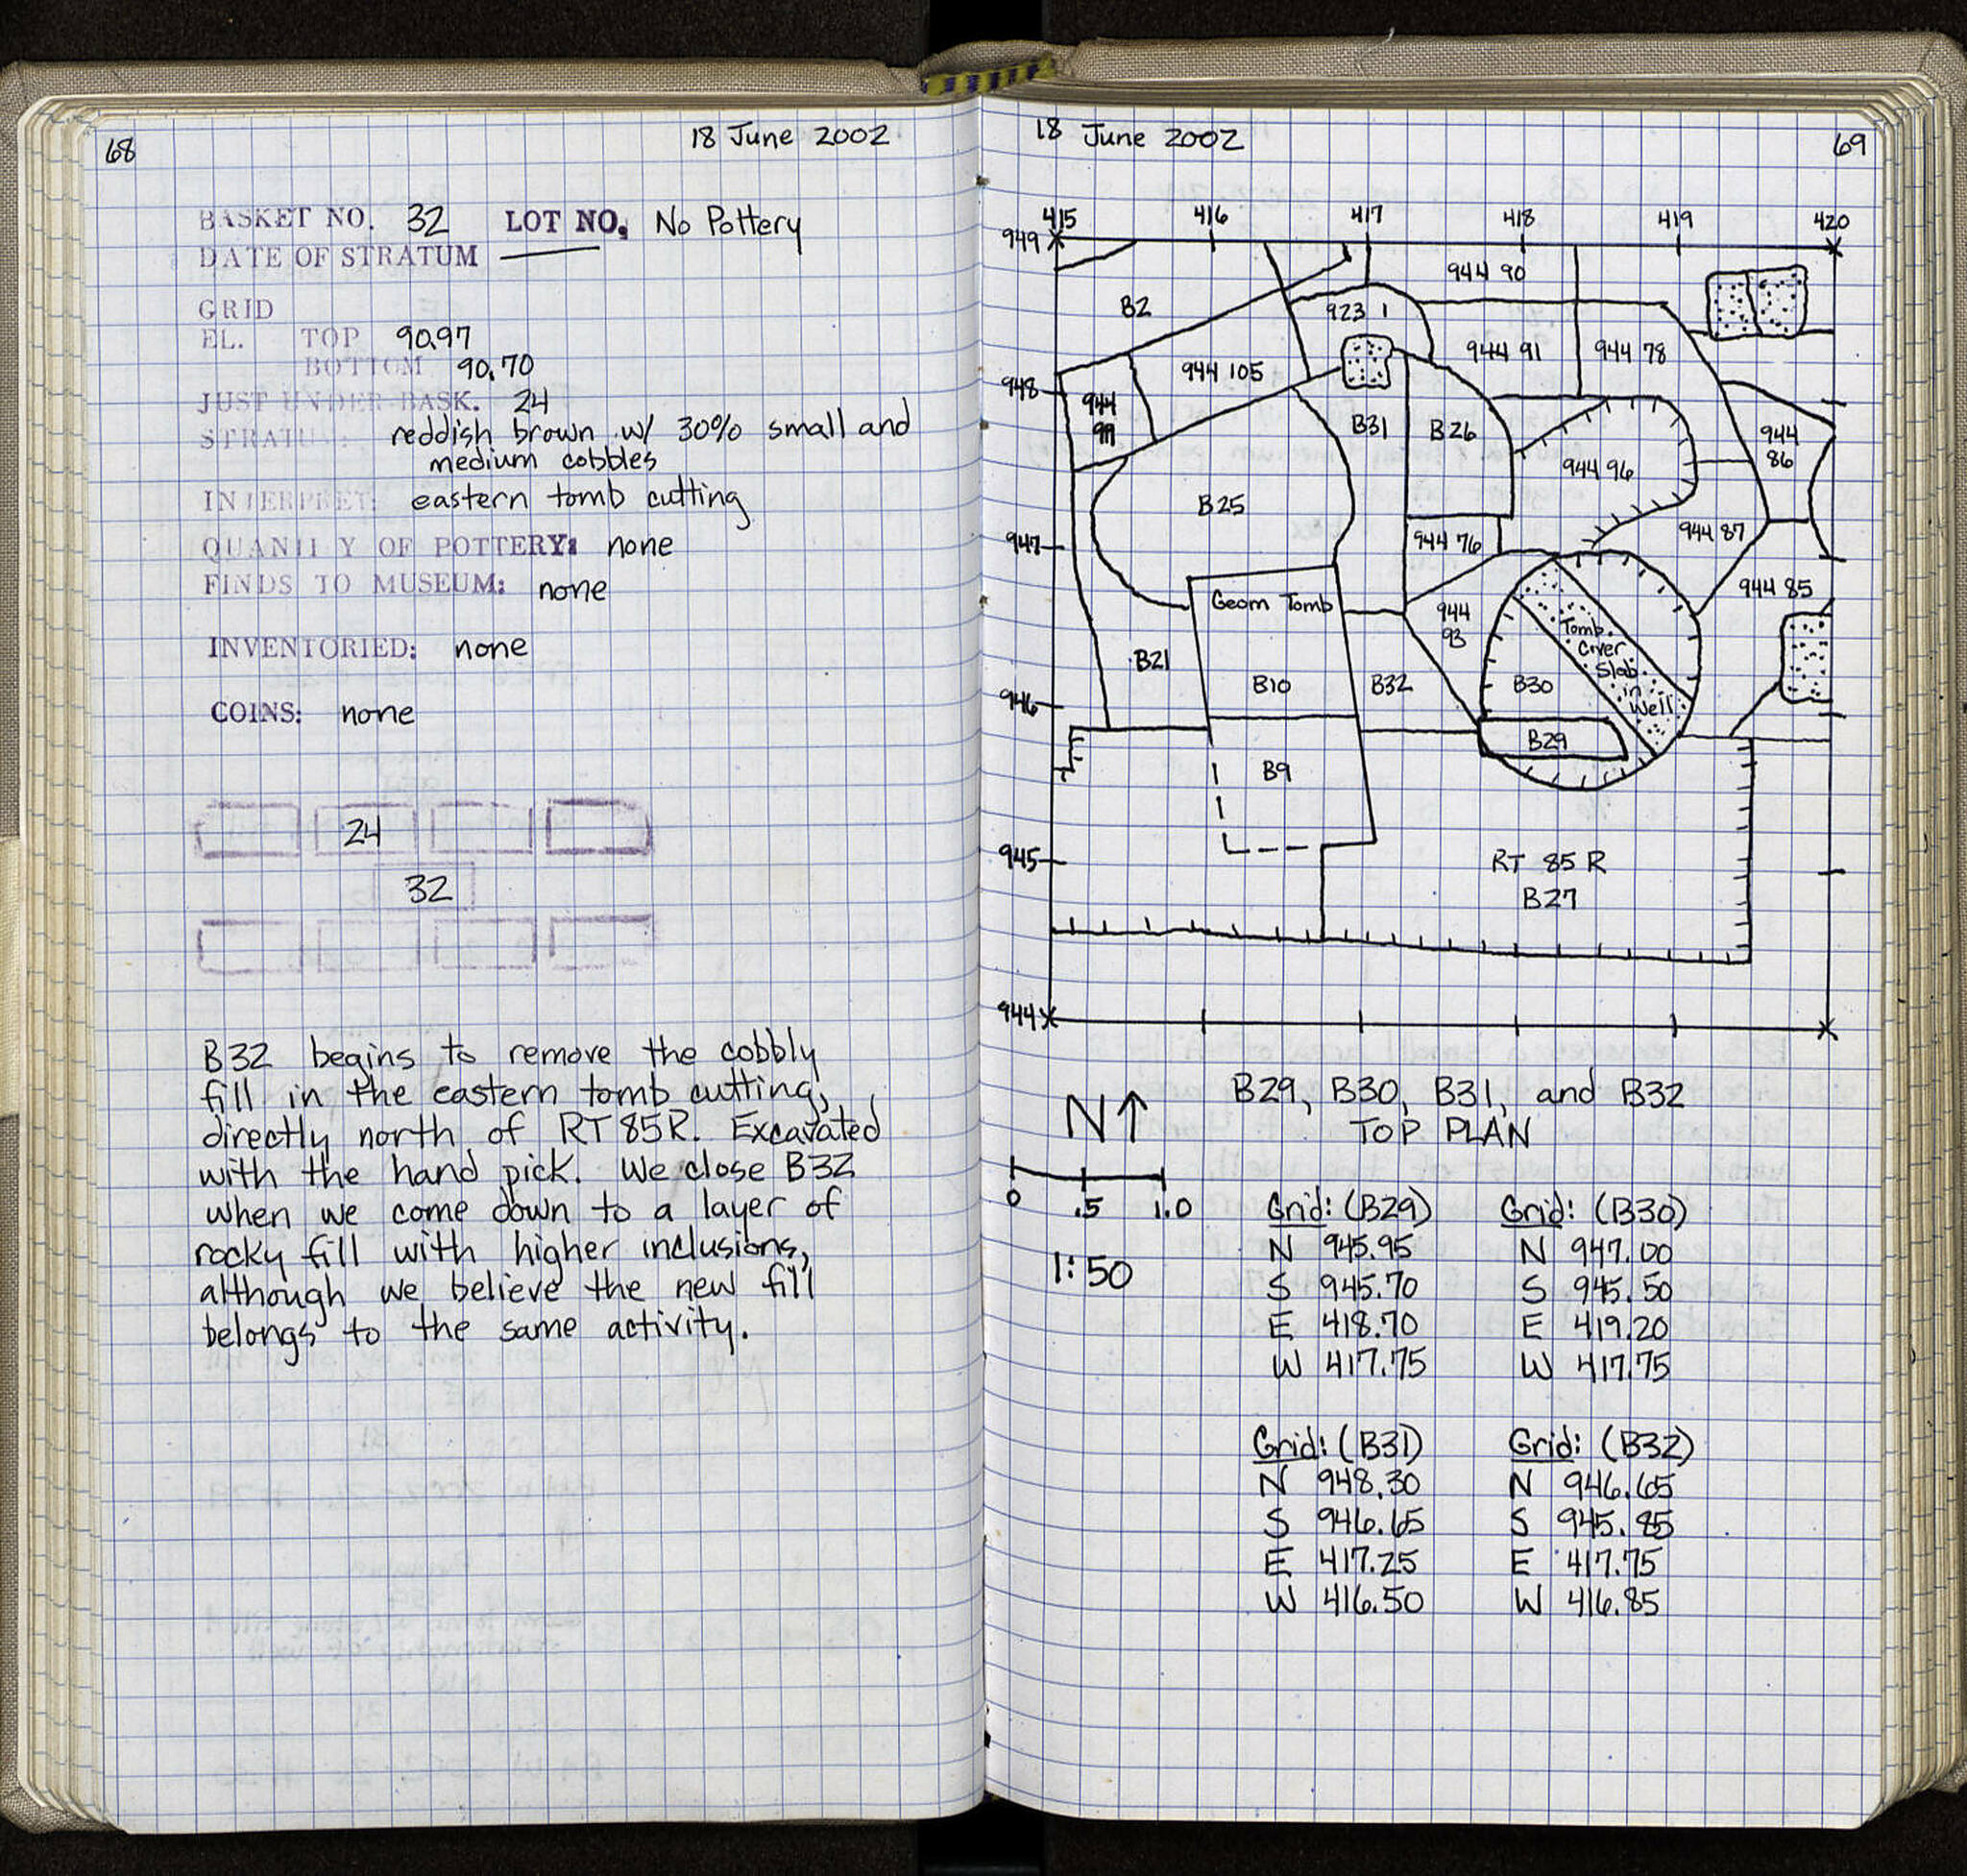 68
18 June 2002
BASKET NO. 32 LOT NO. No Pottery
DATE OF STRATUM ——
GRID
EL. TOP 90.97
BOTTOM 90.70
JUST UNDER BASK. 24
STRATUM: reddish brown w/ 30% small and
medium cobbles
INTERPRET: eastern tomb cutting
QUANTITY OF POTTERY: none
FINDS TO MUSEUM: none
INVENTORIED: none
COINS: none
24
32
B32 begins to remove the cobbly
fill in the eastern tomb cutting,
directly north of RT 85R. Excavated
with the hand pick. We close B32
when we come down to a layer of
rocky fill with higher inclusions,
although we believe the new fill
belongs to the same activity.
18 June 2002
69
415 416 417 418 419 420
949
944 90
B2
923 1
944 91
944 78
944 105
948
944
99
B31
B26
944
86
944 96
B25
944 87
947
944 76
944 85
Geom Tomb
944
93
Tomb
Cover
Slab
in
Well
B21
B10
B32
B30
946
B29
B9
945
RT 85 R
B27
944
N↑
B29, B30, B31, and B32
TOP PLAN
0 .5 1.0
1:50
Grid: (B29)
N 945.95
S 945.70
E 418.70
W 417.75
Grid: (B30)
N 947.00
S 945.50
E 419.20
W 417.75
Grid: (B31)
N 948.30
S 946.65
E 417.25
W 416.50
Grid: (B32)
N 946.65
S 945.85
E 417.75
W 416.85